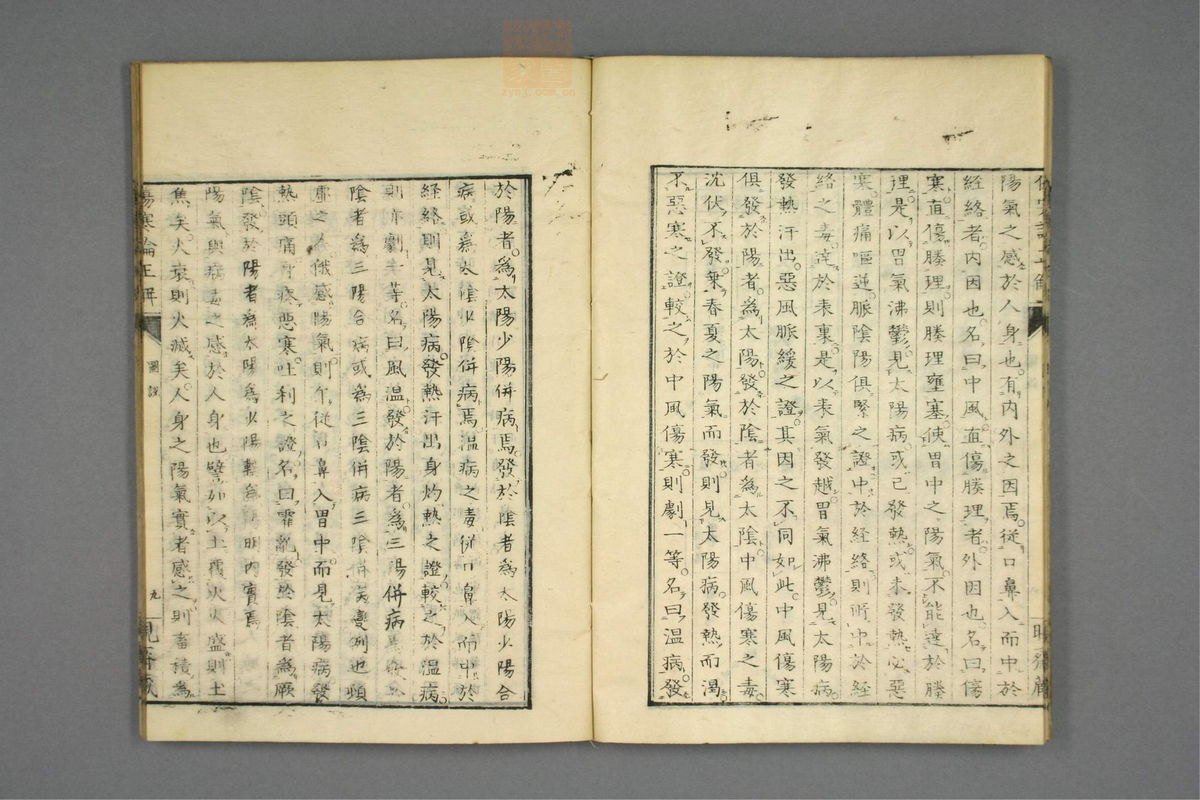 陽氣之感於人身也有内外之因焉從口鼻入而中於
経絡者内因也名曰中風直傷腠理者外因也名曰傷
寒直傷腠理則腠理壅塞使胃中之陽氣不能達於腠
理是以胃氣沸鬱見太陽病或已發熱或未發熱必惡
寒體痛嘔逆脈陰陽俱緊之證中於経絡則所中於経
絡之毒達於表裏是以表氣發越胃氣沸鬱見太陽病
發熱汗出惡風脈緩之證其因之不同如此中風傷寒
俱發於陽者為太陽發於陰者為太陰中風傷寒之毒
沈伏不發乗春夏之陽氣而發則見太陽病發熱而渇
不惡寒之證較之於中風傷寒則劇一等名曰温病發
於陽者為太陽少陽併病焉發於陰者為太陽少陽合
病或為太陰少陰併病焉温病之毒從口鼻入而中於
経絡則見太陽病發熱汗出身灼熱之證較之於温病
則亦劇一等名曰風温發於陽者為三陽併病發於
陰者為三陽合病或為三陰併病三陰併病變列也頓
虚之人俄感陽氣則乍從口鼻入胃中而見太陽病發
熱頭痛身疼惡寒吐利之證名曰霍亂發於陰者為厥
陰發於陽者為太陽為少陽轉為陽明内實焉
陽氣與病毒之感於人身也譬如以土覆火火盛則土
焦矣火衰則火滅矣人身之陽氣實者感之則畜積為
傷寒論正解 圖説 九